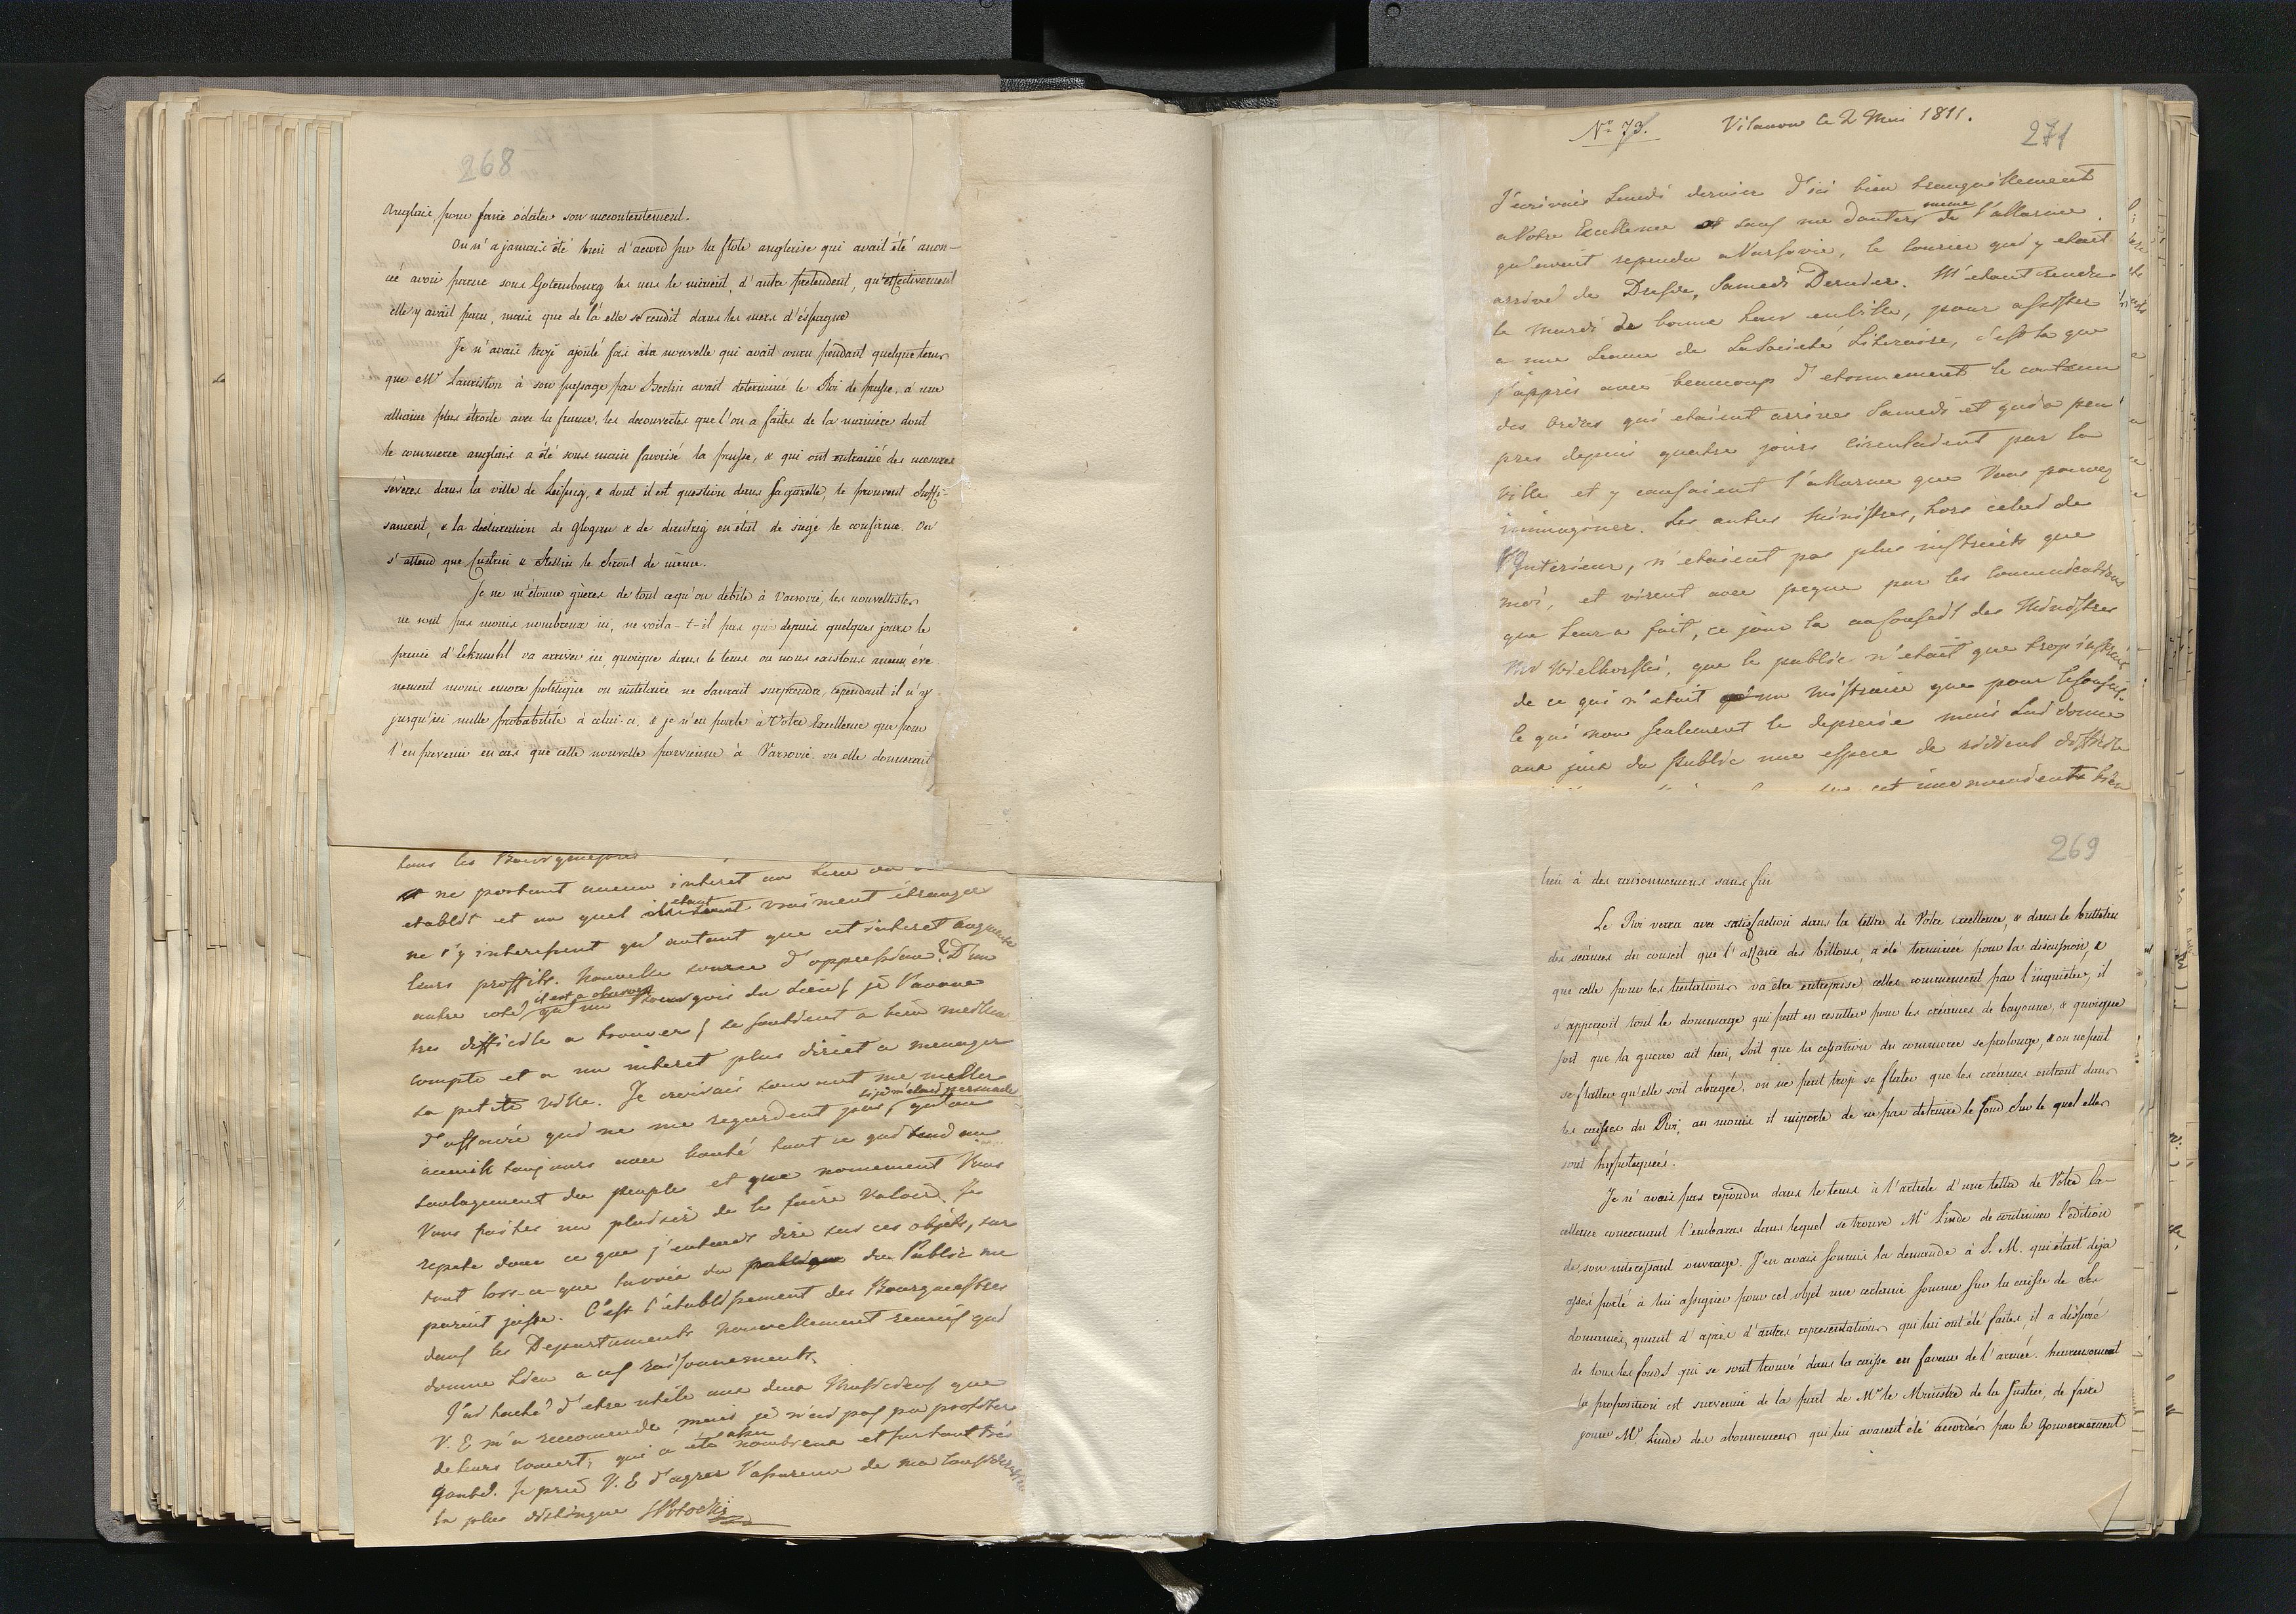 268
Anglais pour faire éclater son mecontentement.
On n'a jamais été bien d'acord sur la flote anglaise qui avait été anon-
cée avoir parue sous Gotembourg les uns le nierent, d'autre pretendent, qu'effectivement
elle y avait paru, mais que de là elle se rendit dans les mers d'éspagne
Je n'avais trop ajouté foi à la nouvelle qui avait couru pendant quelque tems
que Mr Lauriston à son passage par Berlin avait determiné le Roi de prusse, à une
alliance plus étroite avec la france, les decouvertes que l'on a faites de la manière dont
le commerce anglais a été sous main favorisé la prusse, & qui ont entrainé des mesures
sévères dans la ville de Leipzig, & dont il est question dans la gazette, le prouvent suffi-
sament, & la déclaration de Glogau & de dantzig en état de siège le confirme. On
s'attend que Custrin & Stettin le seront de même.
Je ne m'étonne guères de tout cequ'on debite à Varsovie, les nouvellistes
ne sont pas moins nombreux ici, ne voila-t-il pas que depuis quelques jours le
prince d'Ekmuhl va arriver ici, quoique dans le tems ou nous existons aucun éve
nement moins encore politique ou militaire ne saurait surprendre, cependant il n'y
jusqu'ici nulle probabilité à celui-ci, & je n'en parle à Votre Excellence que pour
l'en prevenir en cas que cette nouvelle parvienne à Varsovie. ou elle donnerait
tous les
ne portant aucun interet au lieu ou
etablit et au quel etant vraiment étranger
ne s'y interessent qu'autant que cet interet augmente
leurs proffits. Nouvelle source d'oppression? D'un
autre coté, il est a observer qu'un Bourgeois du Lieu / je l'avoue
tres difficile a trouver / se soutient a bien meilleur
compte et a un interet plus direct a menager
sa petite ville. Je croirais souvent me meller
d'affaires qui ne me regardent pas, si je n'etais persuadé qu'on
acceuille toujours avec bonté tout ce qui tend au
soulagement du peuple et que nomement Vous
Vous faites un plaisir de le faire valoir. Je
repete donc ce que j'entends dire sur ces objets, sur
tout lors-ce-que la voie du publique du Public me
parait juste. C'est l'etablissement des Bourguestres
dans les Departements nouvellement reunis qui
donne Lieu a ces raisonnements.
J'ai taché d'etre utile aux deux Musiciens que
V. E m'a recomendé, mais je n'ai pas pu profiter
de leurs concert, qui a été nombreux et surtout très
gouté. Je prie V. E d'agreer l'assurance de ma consideration
la plus distingue SPotocki
No 73. Vilanow le 2 Mai 1811. 271
J'ecrivais Lundi dernier d'ici bien tranquillement
a Votre Excellence et sans me douter meme de l'allarme
qu'avait rependu a Varsovie, le courier qui y etait
arrivé de Dresde, Samedi Dernier. M'etant rendu
le mardi de bonne heure en ville, pour assister
a une Seance de La Societé Literaire, c'est la que
j'appris avec beaucoup d'etonnement le contenu
des ordres qui etaient arrivés Samedi et qui a peu
pres depuis quatre jours circulaient par la
ville et y causaient l'allarme que Vous pouvez
immaginer. Les autres Ministres, hors celui de
l'Interieur, n'etaient pas plus instruits que
moi, et virent avec peine par les comunications
que leur a fait, ce jour la au Conseil des Ministres
Mr Wielhorski, que le public n'etait que trop instruit
de ce qui n'etait un mistere que pour le Conseil.
ce qui non seulement le deprecie mais lui donne
aux yeux du Public une espece de ridicul difficile
269
lieu à des raisonnemens sans fin
Le Roi verra avec satisfaction dans la lettre de Votre Excellence, & dans le bulletin
des séances du conseil que l'affaire des billons, a été terminée pour la discussion, &
que celle pour les licitations va être entreprise, celles commencent par l'inquieter, il
s'apperçoit tout le dommage qui peut en resulter pour les créances de bayonne, & quoique
soit que la guerre ait lieu, soit que la cessation du commerce se prolonge, & on ne peut
se flatter qu'elle soit abregée, on ne peut trop se flater que les créances entront dans
les caisses du Roi, au moins il importe de ne pas detruire le fond sur le quel elles
sont hypotequées.
Je n'avais pas repondu dans le tems à l'article d'une lettre de Votre Ex-
cellence concernant l'embaras dans lequel se trouve Mr Linde de continuer l'edition
de son interessant ouvrage. J'en avais soumis la demande à S. M. qui était déja
assés porté à lui assigner pour cet objet une certaine somme sur la caisse de Ses
domaines, quand d'après d'autres representations qui lui ont été faites, il a disposé
de tous les fonds qui se sont trouvé dans la caisse en faveur de l'armée. heureusement
la proposition est survenue de la part de Mr le Ministre de la Justice, de faire
jouir Mr Linde des abonnemens qui lui avaient été accordés par le Gouvernement